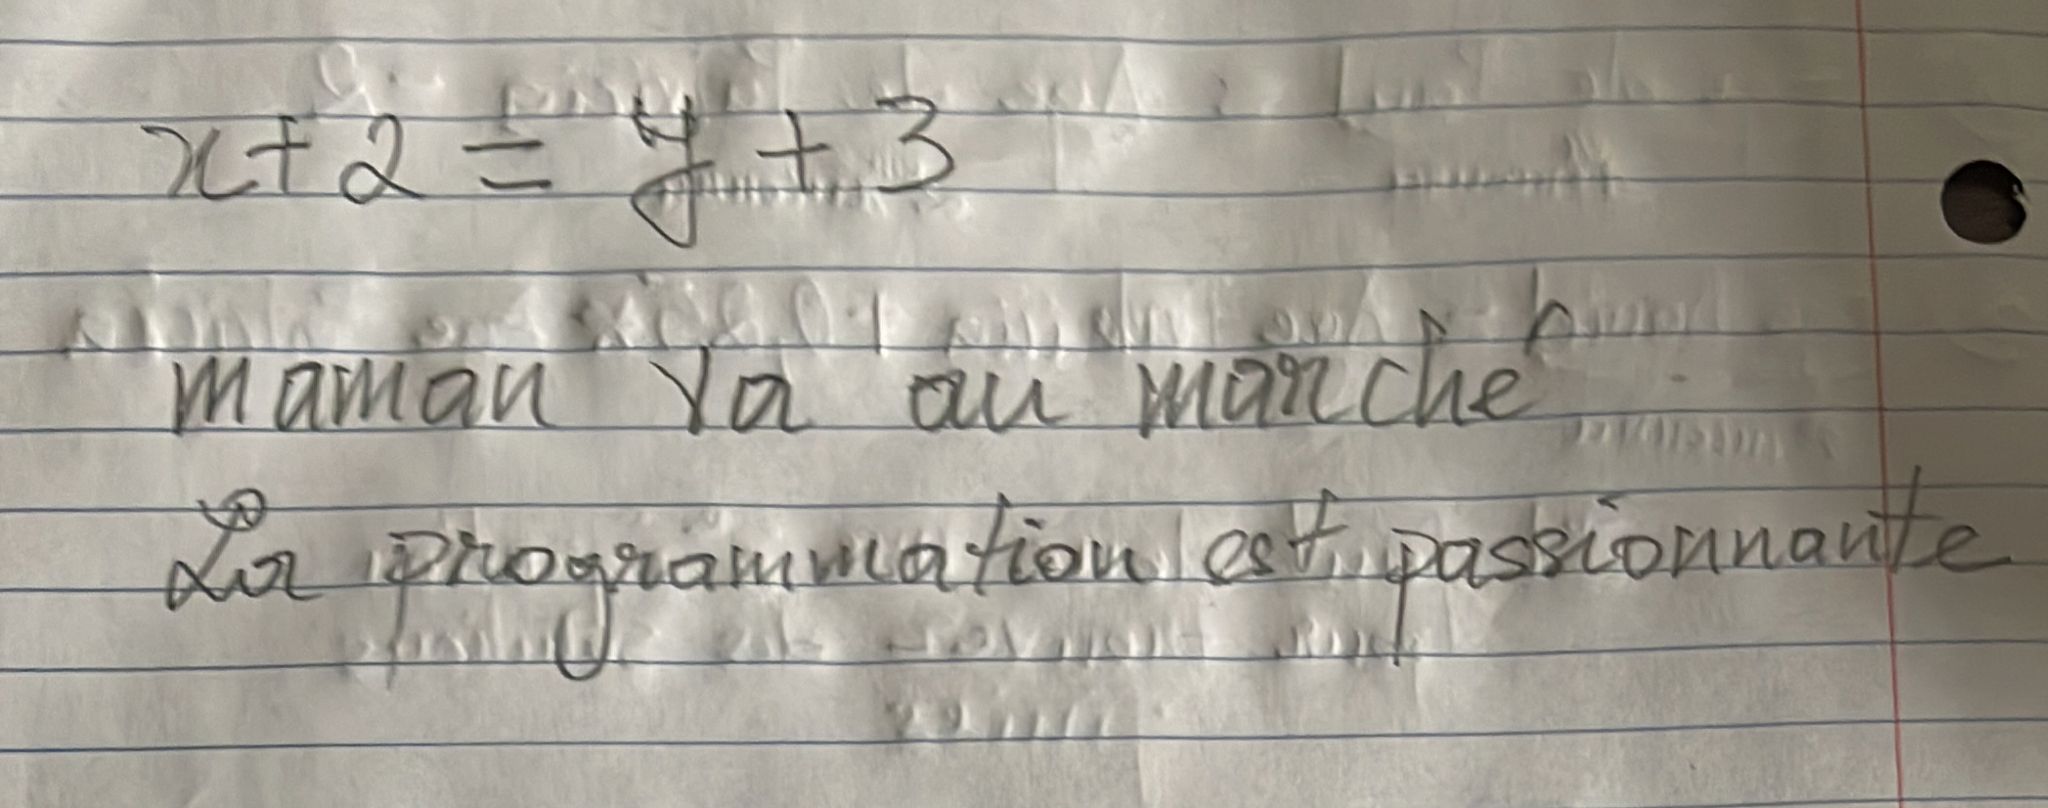 x + 2 = y + 3
maman va au marché
La programmation est passionnante